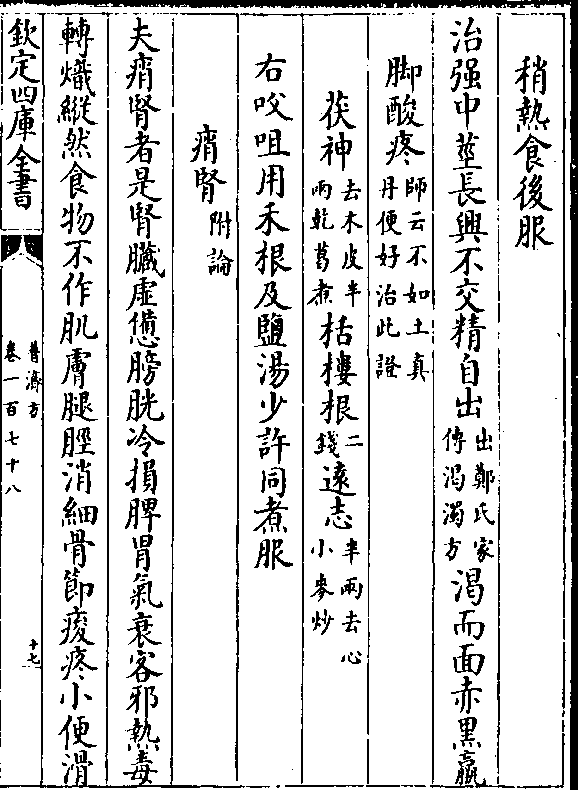 稍熱食後服
治强中莖長興不交精自出出鄭氏家傳渴濁方渴而面赤黒羸
脚酸疼師云不如土真丹便好治此證
茯神去木皮半兩乾葛煮栝樓根二錢遠志半兩去心小麥炒
右㕮咀用禾根及鹽湯少許同煮服
痟腎附論
夫痟腎者是腎臟虚憊膀胱冷損脾胃氣衰客邪熱毒
轉熾縱然食物不作肌膚腿脛消細骨節痠疼小便滑
欽定四庫全書
普濟方
卷一百七十八
十七